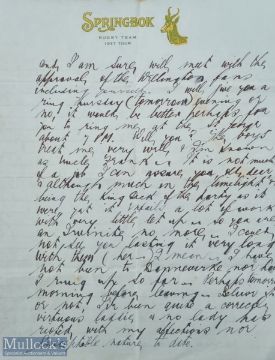 SPRINGBOK
RUGBY TEAM
1937 TOUR
and I am sure, will meet with the
approval of the Wellington fans
including yourself. I will give you a
ring Thursday (tomorrow) evening or
no, it would be better perhaps for
you to ring me at the
about 7 PM. Will you? The boys
treat me very well, I am known
as Uncle Frank. It is not much
of a job I can assure you my dear
& although much in the limelight &
being the King Scout of the party as it
were, yet it entails a lot of work
with very little let up - so you are
an no more. I
not say you lasting it very long
with them (her - I mean - I have
not been to Dannevirke nor have
I rung up so far - Perhaps tomorrow
morning before leaving. Believe it
or not I've been quite a correct &
virtuous laddie & no lady has
my affections nor
nature to date.
Mullock's
Specialist Auctioneers & Valuers